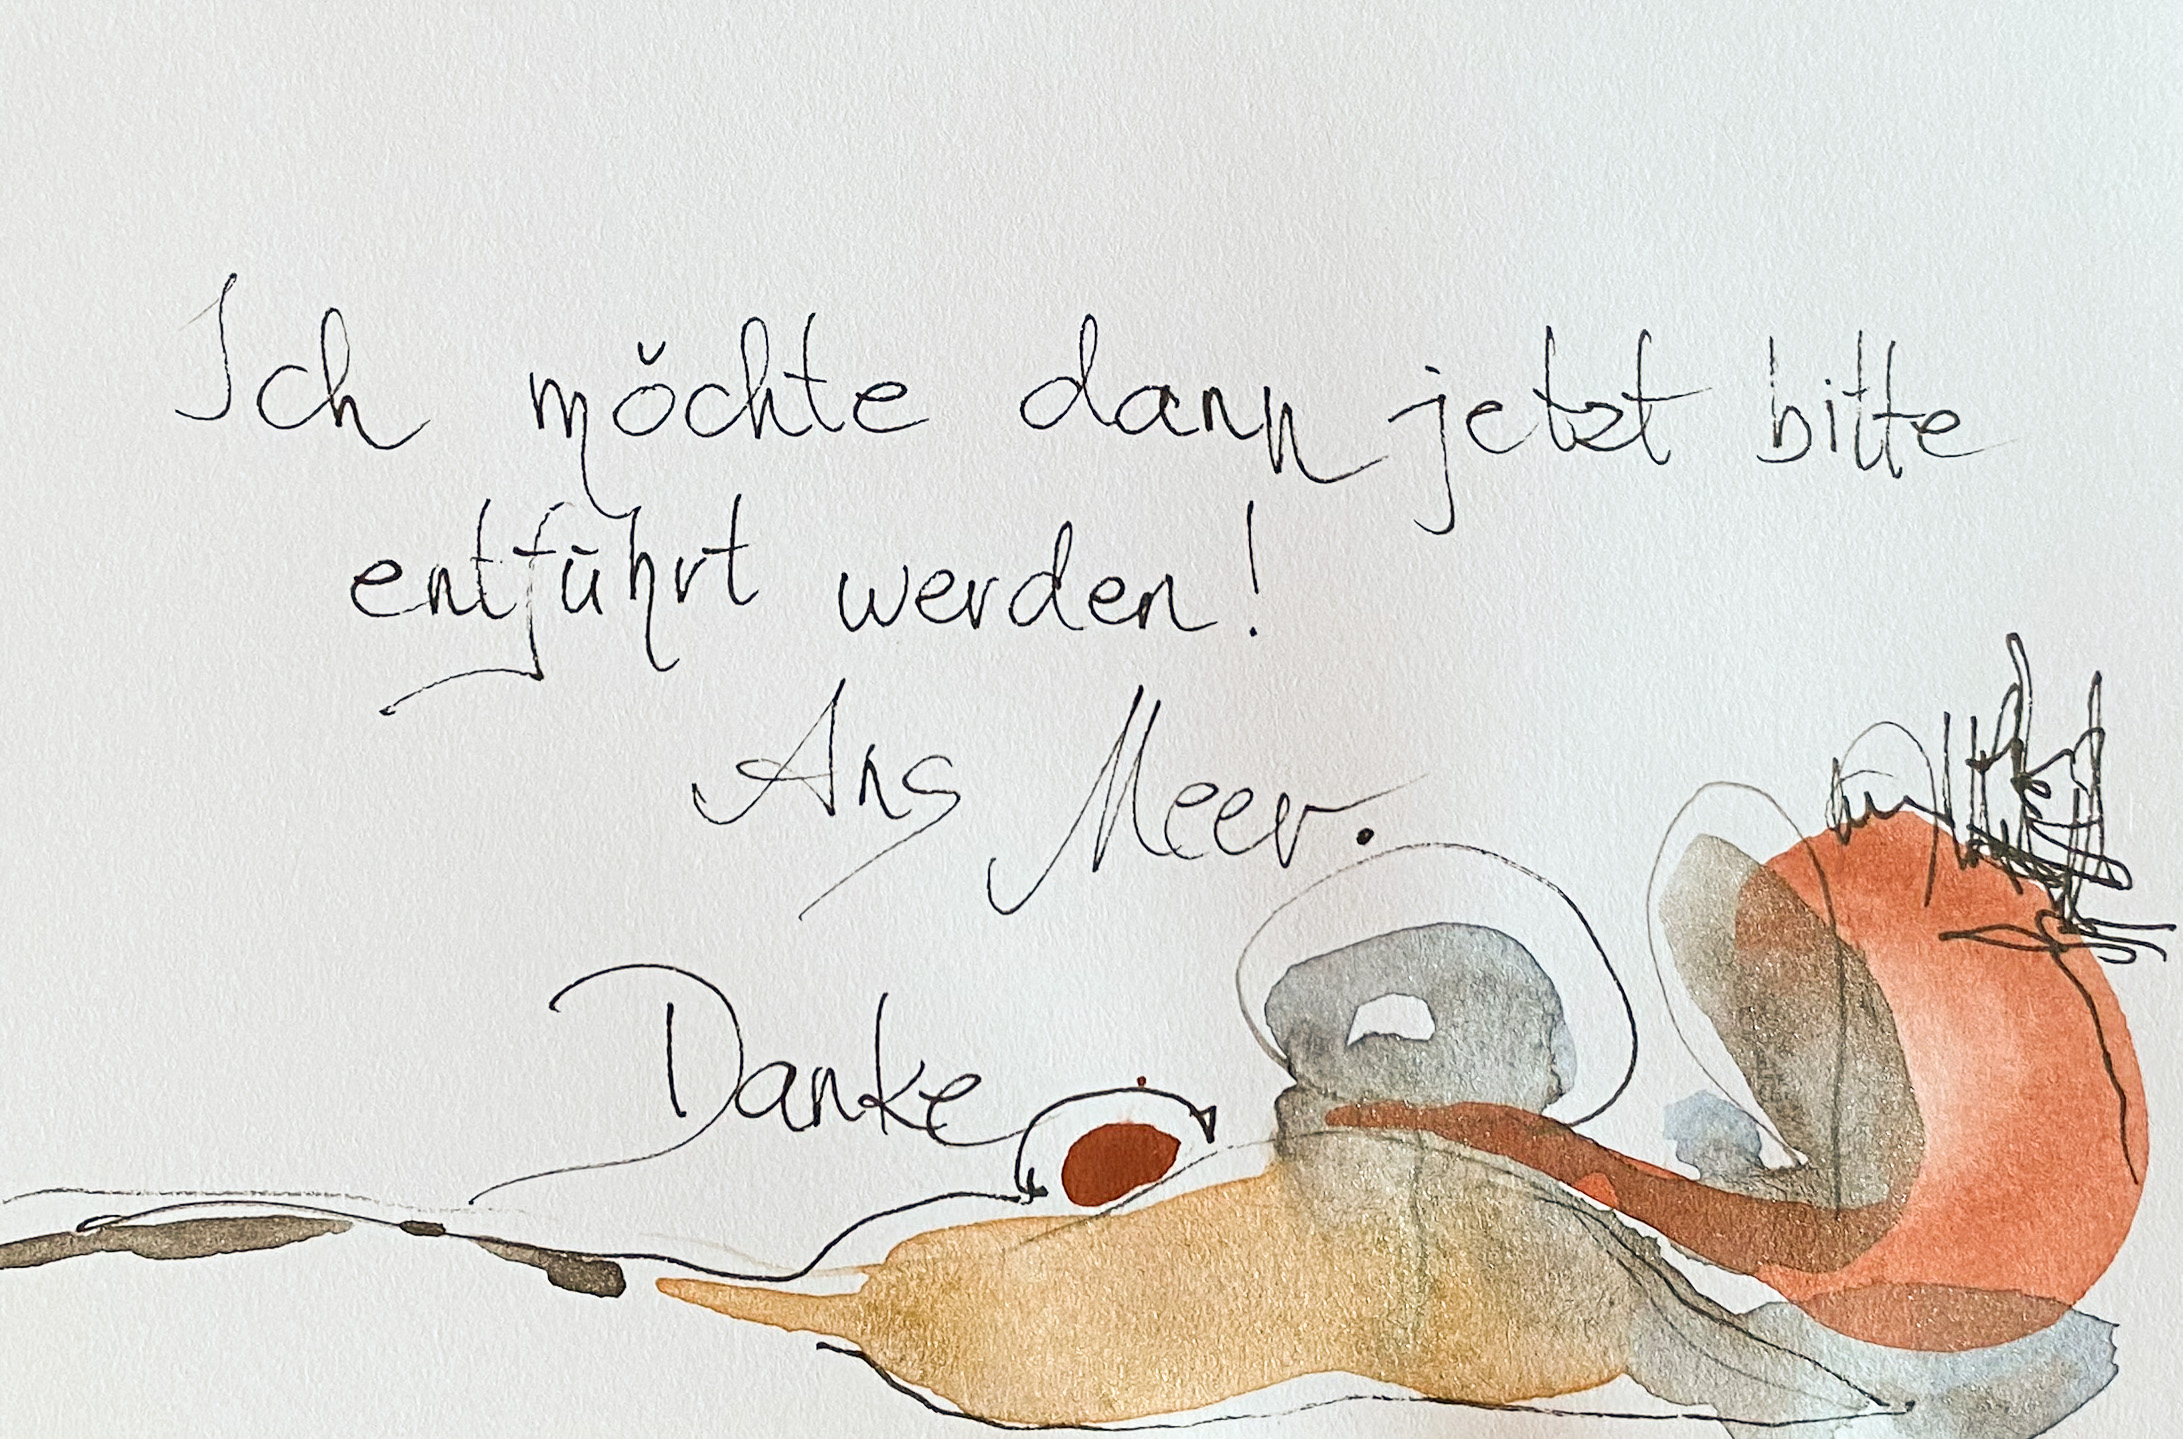 Ich möchte dann jetzt bitte
entführt werden!
Ans Meer.
Danke